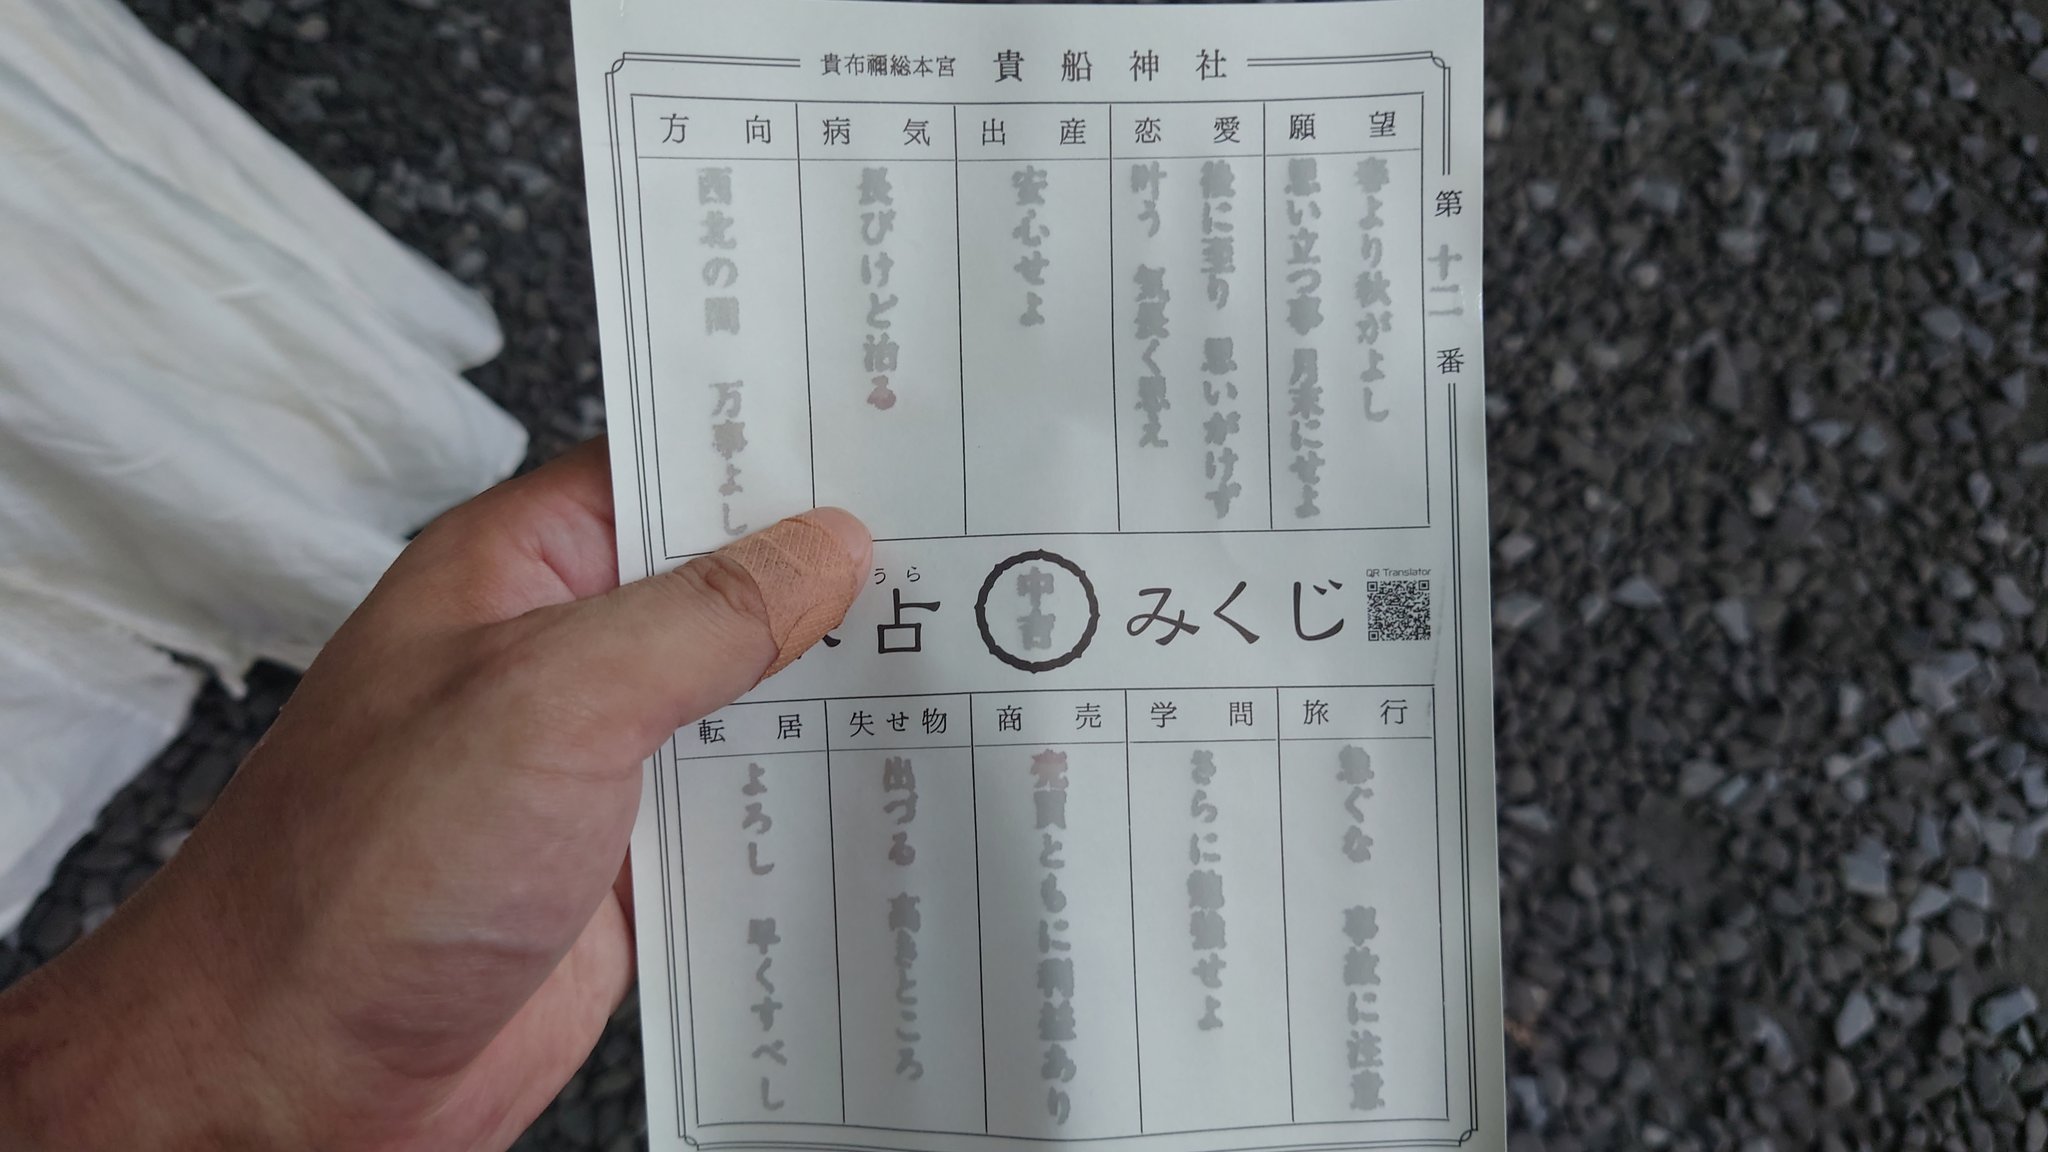 貴布禰総本宮 貴船神社
第十二番
願望
春より秋がよし
思い立つ事 月末にせよ
恋愛
後に至り 思いがけず
叶う 気長く思え
出産
安心せよ
病気
長びけど治る
方向
西北の間 万事よし
うら
占
中吉
みくじ
QR Translator
旅行
急ぐな 事故に注意
学問
さらに勉強せよ
商売
売買ともに利益あり
失せ物
出づる 高きところ
転居
よろし 早くすべし